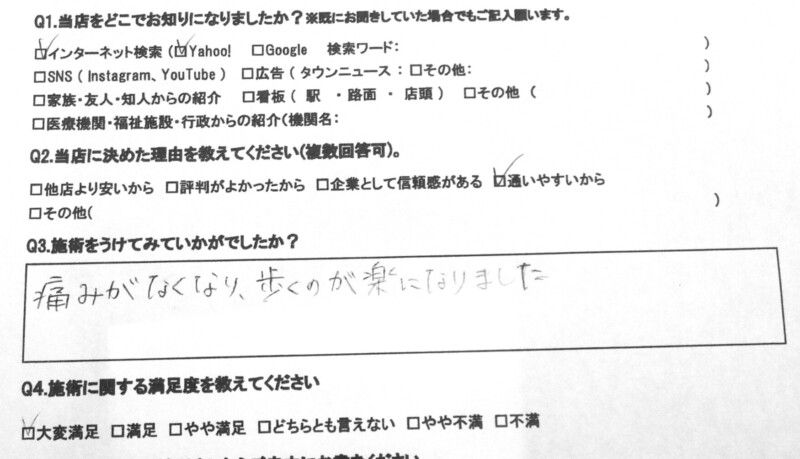 Q1.当店をどこでお知りになりましたか？※既にお聞きしていた場合でもご記入願います。
☑インターネット検索（☑Yahoo! □Google 検索ワード： ）
□SNS（Instagram、YouTube） □広告（タウンニュース ： □その他： ）
□家族・友人・知人からの紹介 □看板（ 駅 ・路面 ・ 店頭 ） □その他 （ ）
□医療機関・福祉施設・行政からの紹介（機関名： ）
Q2.当店に決めた理由を教えてください（複数回答可）。
□他店より安いから □評判がよかったから □企業として信頼感がある ☑通いやすいから
□その他（ ）
Q3.施術をうけてみていかがでしたか？
痛みがなくなり、歩くのが楽になりました
Q4.施術に関する満足度を教えてください
☑大変満足 □満足 □やや満足 □どちらとも言えない □やや不満 □不満